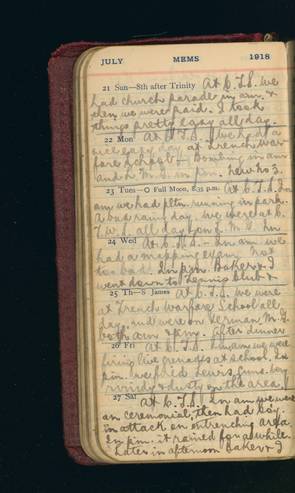 JULY MEMS 1918
21 Sun—8th after Trinity At C.T.S. we
had church parade in am. &
then we were paid. I took
things pretty easy all day.
22 Mon At C.T.S. we had a
nice easy day at Trench War
fare School — Bombing in am
and L.M.G. in pm. No 3.
23 Tues—O Full Moon, 8.35 p.m. At C.T.S. In
am we had pltn. running in park.
A bad rainy day. We were at
T.W.S. all day on L.M.G. In
24 Wed At C.T.S. — In am. we
had a mapping exam. Not
too bad. In pm. Baker & I
went down to Tennis Club &
25 Th—S. James At C.T.S. we were
at Trench Warfare School all
day, and were on German M.G.
both am & pm. After dinner
26 Fri At C.T.S. In am we were
firing live grenades at school. In
pm. we fired Lewis guns. Very
windy & dusty on the area.
27 Sat At C.T.S. In am we were
on ceremonial, then had Coy.
in attack on entrenching area
In pm. it rained for awhile.
Later in afternoon Baker & I